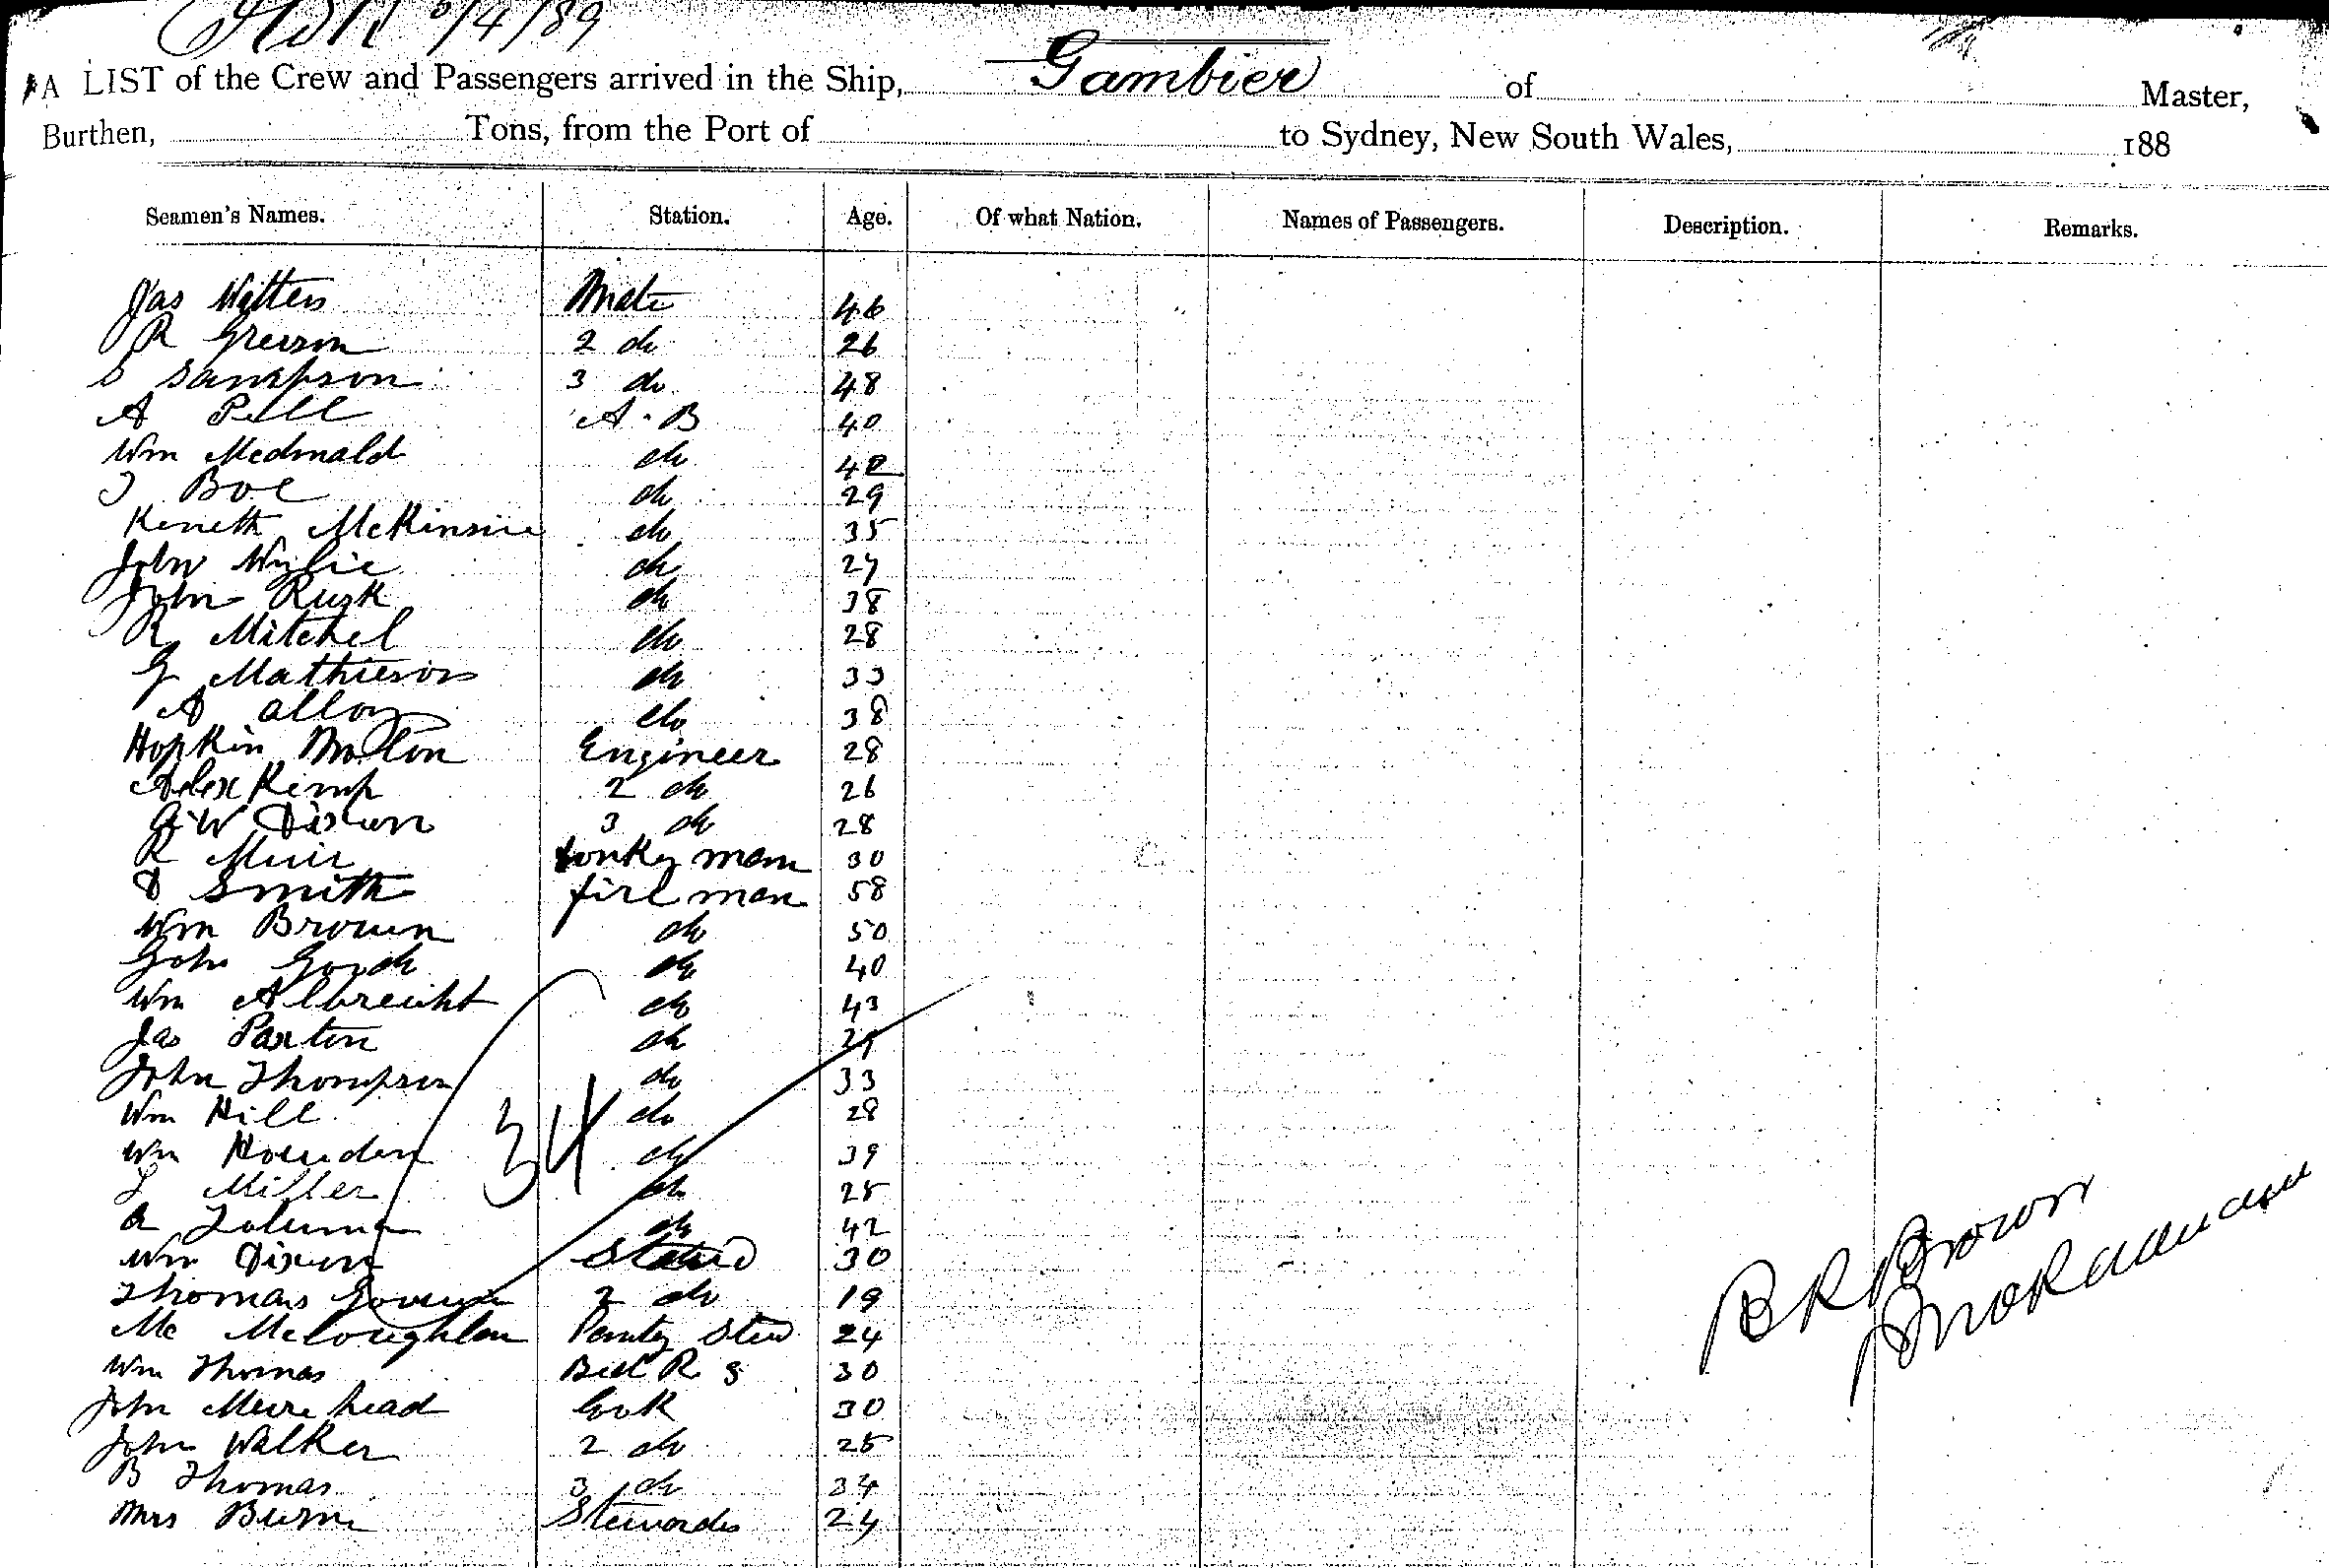 /4/89
A LIST of the Crew and Passengers arrived in the Ship, Gambier of Master,
Burthen, Tons, from the Port of to Sydney, New South Wales, 188
Seamen's Names. Station. Age. Of what Nation. Names of Passengers. Description. Remarks.
Jas Mate 46
R 2 do 26
S Sampson 3 do 48
A Pill A. B 40
Wm Mcdonald do 40
Boe do 29
Kenneth McKinsie do 35
John Wylie do 27
John Rusk do 38
R Mitchel do 28
G Mathieson do 33
A alloy do 38
Hopkin Molton Engineer 28
Alex Kemp 2 do 26
W Dixon 3 do 28
R Muir donkey man 30
D Smith fire man 58
Wm Brown do 50
John do 40
Wm Albreicht do 43
Jas Paxton do 29
John Thompson do 33
Wm Hill do 28
34
Wm Howden do 39
Miller do 25
do 42
Wm Dixon 30
Thomas 2 do 19
Mc McLoughlan Pantry Stew 24
Wm Thomas R S 30
John Muirehead Cook 30
John Walker 2 do 25
B Thomas 3 do 34
Mrs Burns Stewardes 24
B R Brown